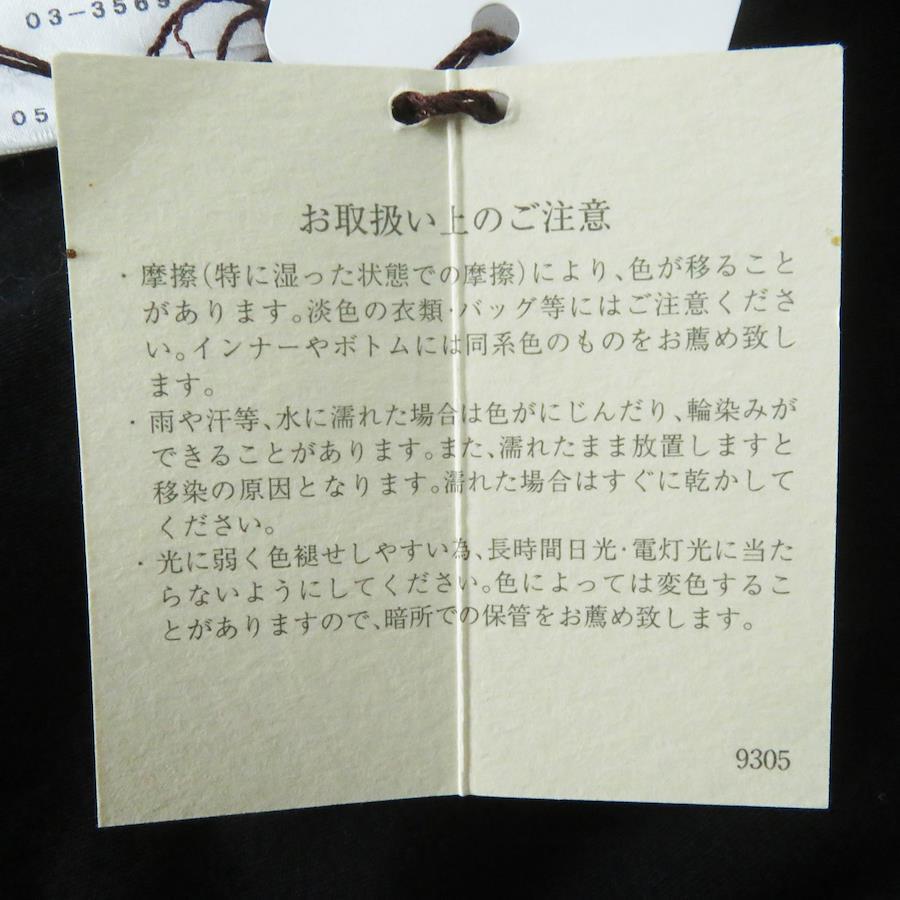 03-3569
05
お取扱い上のご注意
・摩擦(特に湿った状態での摩擦)により、色が移ること
があります。淡色の衣類・バッグ等にはご注意くださ
い。インナーやボトムには同系色のものをお薦め致し
ます。
・雨や汗等、水に濡れた場合は色がにじんだり、輪染みが
できることがあります。また、濡れたまま放置しますと
移染の原因となります。濡れた場合はすぐに乾かして
ください。
・光に弱く色褪せしやすい為、長時間日光・電灯光に当た
らないようにしてください。色によっては変色するこ
とがありますので、暗所での保管をお薦め致します。
9305